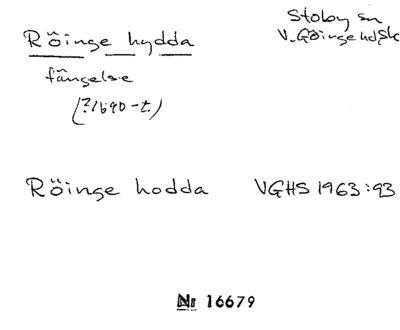 Röinge hydda
Stoby sn
V. Göinge hd, Sk
fängelse
(?1690-t.)
Röinge hodda
VGHS 1963:93
Nr 16679